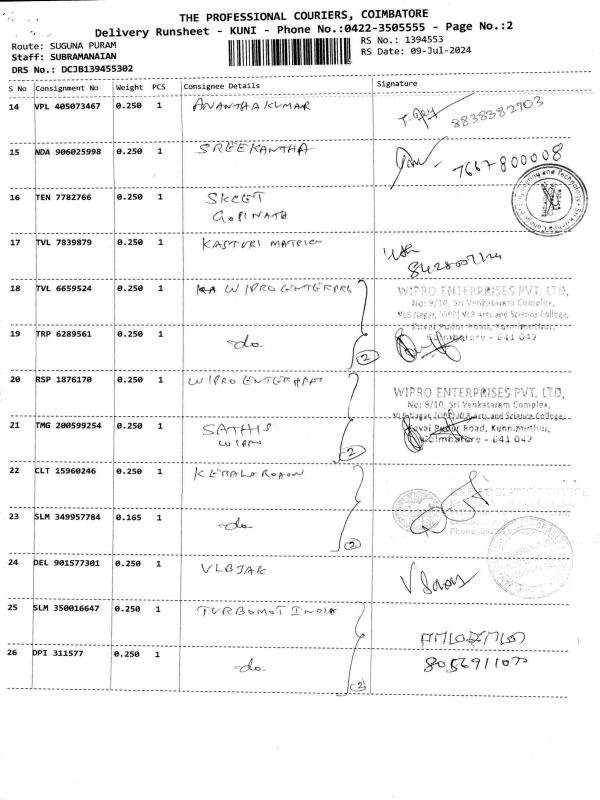 THE PROFESSIONAL COURIERS, COIMBATORE
Delivery Runsheet - KUNI - Phone No.:0422-3505555 - Page No.:2
Route: SUGUNA PURAM
RS No.: 1394553
Staff: SUBRAMANAIAN
RS Date: 09-Jul-2024
DRS No.: DCJB139455302
S No Consignment No Weight PCS Consignee Details Signature
14 VPL 405073467 0.250 1 ANANTHA KUMAR
8838382703
15 NDA 906025998 0.250 1 SREEKANTHA
7667800008
16 TEN 7782766 0.250 1 SKCET
GOPINATH
17 TVL 7839879 0.250 1 KASTURI
18 TVL 6659524 0.250 1 WIPRO ENTERPRIS
WIPRO ENTERPRISES PVT. LTD,
No: 9/10, Sri Venkataram Complex,
VLB Nagar, (OPP) VLB Arts and Science College,
Kovai Pudur Road, Kunnimuthur,
Coimbatore - 641 042
19 TRP 6289561 0.250 1 do
2
20 RSP 1876170 0.250 1 WIPRO
WIPRO ENTERPRISES PVT. LTD,
No: 9/10, Sri Venkataram Complex,
VLB Nagar, (OPP) VLB Arts and Science College,
Kovai Pudur Road, Kunnimuthur,
Coimbatore - 641 042
21 TMG 200599254 0.250 1 SATHIS
WIPRO
2
22 CLT 15960246 0.250 1 KERALA
23 SLM 349957784 0.165 1 do
2
24 DEL 901577301 0.250 1 VLBJAK
25 SLM 350016647 0.250 1 TURBOMOT INDIA
26 DPI 311577 0.250 1 do
2